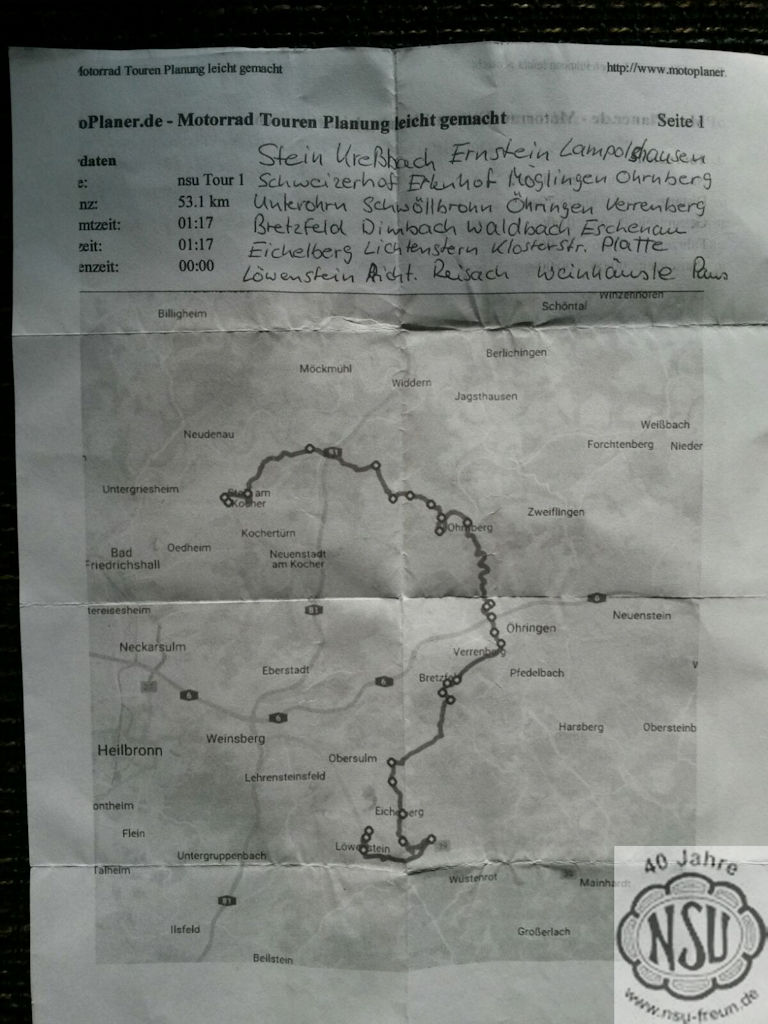 Motorrad Touren Planung leicht gemacht
http://www.motoplaner.
oPlaner.de - Motorrad Touren Planung leicht gemacht Seite 1
daten
Stein Kreßbach Ernstein Lampolshausen
e: nsu Tour 1 Schweizerhof Erlenhof Möglingen Ohrnberg
nz: 53.1 km Unterohrn Schwöllbronn Öhringen Verrenberg
mtzeit: 01:17 Bretzfeld Dimbach Waldbach Eschenau
zeit: 01:17 Eichelberg Lichtenstern Klosterstr. Platte
enzeit: 00:00 Löwenstein Richt. Reisach Weinhäusle Paus
Winzenhofen
Billigheim
Schöntal
Berlichingen
Möckmühl
Widdern
Jagsthausen
Weißbach
Neudenau
Forchtenberg Nieder
81
Untergriesheim
Stein am Kocher
Zweiflingen
Ohrnberg
Kochertürn
Oedheim
Bad Friedrichshall
Neuenstadt am Kocher
6
tereisesheim
81
Neuenstein
Öhringen
Neckarsulm
Verrenberg
Eberstadt
Bretzfeld
Pfedelbach
6
6
6
Weinsberg
Harsberg
Obersteinb
Heilbronn
Obersulm
Lehrensteinsfeld
ontheim
Eichelberg
Flein
Löwenstein
39
Untergruppenbach
Talheim
Wüstenrot
Mainhardt
81
Ilsfeld
Großerlach
Beilstein
40 Jahre
NSU
www.nsu-freun.de